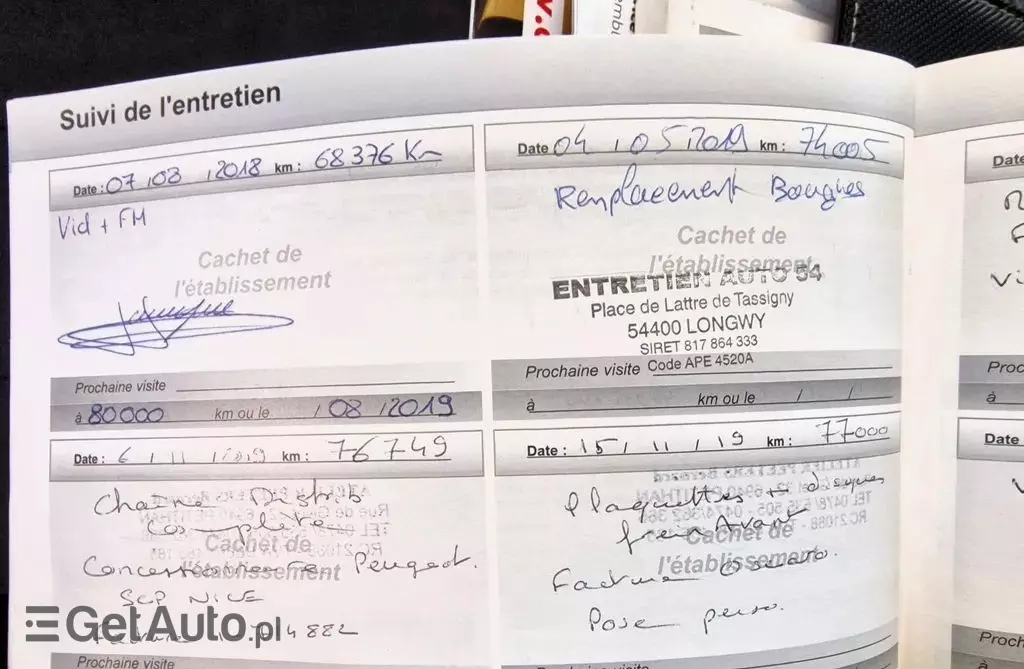 Suivi de l'entretien
Date : 07 / 08 / 2018 km : 68376 Km
Vid + FM
Cachet de
l'établissement
Prochaine visite
à 80000 km ou le / 08 / 2019
Date 04 / 05 / 2019 km : 74005
Remplacement Bougies
Cachet de
l'établissement
ENTRETIEN AUTO 54
Place de Lattre de Tassigny
54400 LONGWY
SIRET 817 864 333
Code APE 4520A
Prochaine visite
à km ou le / /
Date : 6 / 11 / 2019 km : 76749
Chaine Distrib
complète
Cachet de
l'établissement
Concessionnaire Peugeot.
SCP NICE
Prochaine visite
Date : 15 / 11 / 19 km : 77000
Plaquettes + disques
frein Avant
Cachet de
l'établissement
Facture
Pose perso.
Prochaine visite
Date
Proc
à
Date
Proch
GetAuto.pl